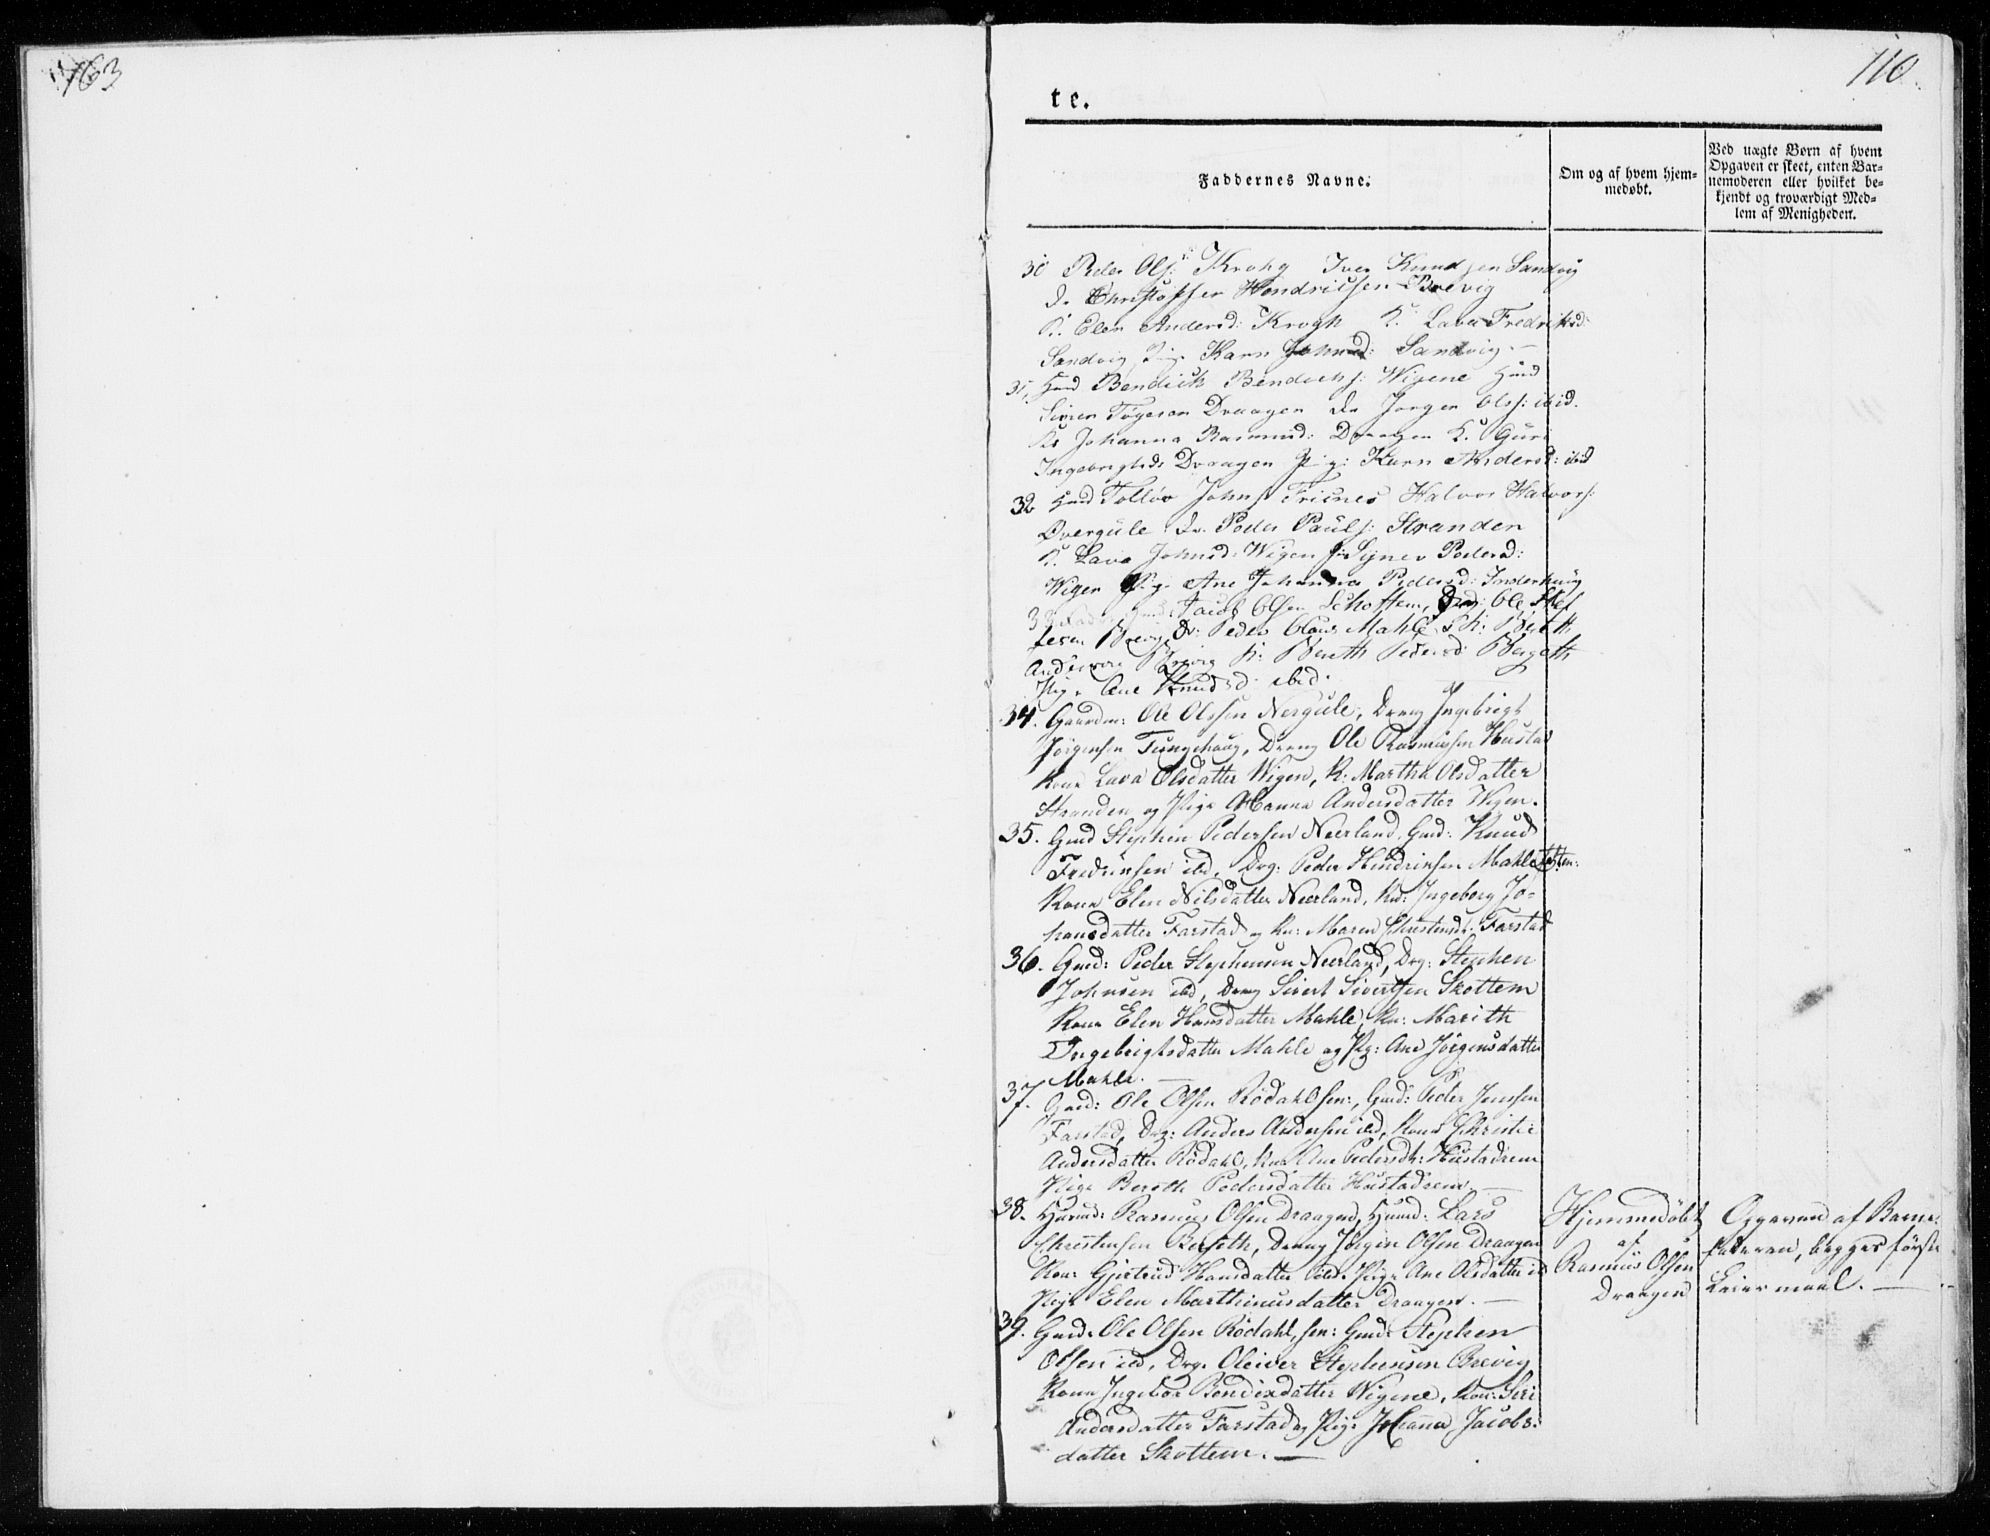 163
110.
te.
Faddernes Navne.
Om og af hvem hjem-
medøbt.
Ved uægte Børn af hvem
Opgaven er skeet, enten Bar-
nemoderen eller hvilket be-
kjendt og troværdigt Med-
lem af Menigheden.
30 Peder Ols: Krohg Iver Knudsen Sandvig
D. Christopher Hendrichsen Brevig
K. Elen Andersd: Krogh K. Lava Fredriksd:
Sandvig Pig. Karn Johnsd: Sandvig.—
31, Hmd Bendick Bendichs: Wigene Hmd
Siver Draagen Dr Jørgen Ols: ibid.
Ko Johanna Rasmusd: Draagen K. Guri
Ingebrigtsd: Draagen Pig: Karn Andersd: ibid
32 Hmd Tolløv Johns: Frisnes Halvor Halvors:
Overgule Dr. Peder Pauls: Stranden
K. Lava Johnsd: Wigen Signev Pedersd:
Wigen Pig. Ane Johanna Pedersd: Inderhaug
33. Jacob Olsen Schottem, Ole
Brevig Dr: Peder Mahle, K: Berith
Brevig K: Bereth Pedersd: Bergeth
Pig. Ane Knudsd: ibid.
34. Gaardm: Ole Olssen Nergule, Dreng Ingebrigt
Jørgensen Tungehaug, Dreng Ole Rasmussen Hustad
Kone Lava Olsdatter Wigen, K: Martha Olsdatter
Stranden og Pige Hanna Andersdatter Wigen.
35. Gmd Stephen Pedersen Neerland, Gmd: Knud
Fredriksen ibd, Drg: Peder Hendriksen Mahle
Kone Elen Nilsdatter Neerland, Kn: Ingeborg Jo-
hansdatter Farstad og Kn: Maren Christensd: Farstad
36. Gmd: Peder Stephensen Neerland, Drg: Stephen
Johnsen ibd, Dreng Sivert Sivertsen Skottem
Kone Elen Hansdatter Mahle, Kn: Marith
Ingebrigtsdatter Mahle og Pg: Ane Jørgensdatter
Mahle.—
37. Gmd: Ole Olsen Rödahl sen:, Gmd: Peder Jensen
Farstad, Drg: Anders Andersen ibd, Kone Christie
Andersdatter Rödahl, Kone Ane Pedersdt: Hustadnem
Pige Bereth Pedersdatter Hustadnem.—
38. Huusmd: Rasmus Olsen Draagen, Huusmd: Lars
Christensen Berseth, Dreng Jörgen Olsen Draagen
Kone Gjertrud Hansdatter ibid. Pige Ane Olsdatter ib
Pige Elen Marthinusdatter Draagen.—
Hjemmedöbt
af
Rasmus Olsen
Draagen
Opgaven af Barne-
faderen, begges første
Leiermaal.—
39. Gmd: Ole Olsen Rödahl, sen: Gmd: Stephen
Olsen ibd, Drg. Oleiver Stephensen Brevig
Kone Ingebor Bendixdatter Wigene, Kone: Siri
Andersdatter Farstad og Pige Johanna Jacobs-
datter Skottem.—